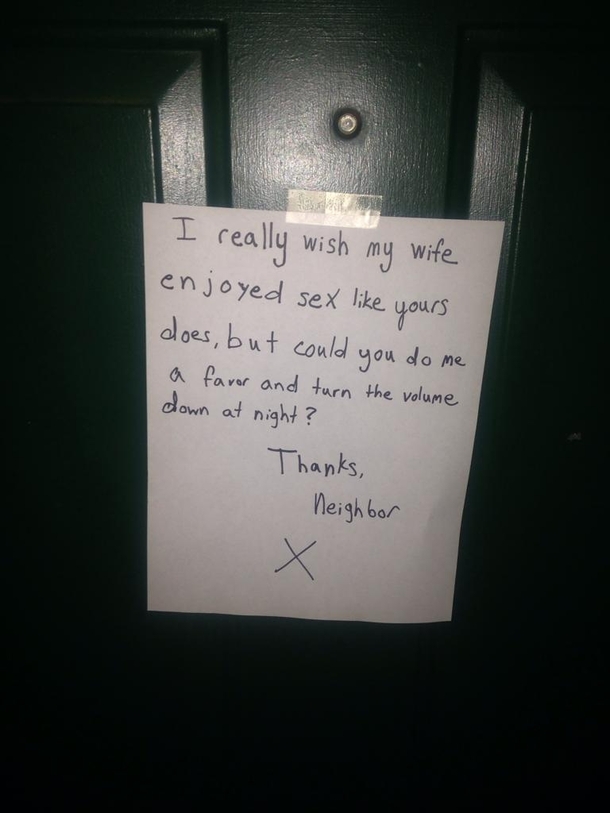 I really wish my wife
enjoyed sex like yours
does, but could you do me
a favor and turn the volume
down at night?
Thanks,
Neighbor
X